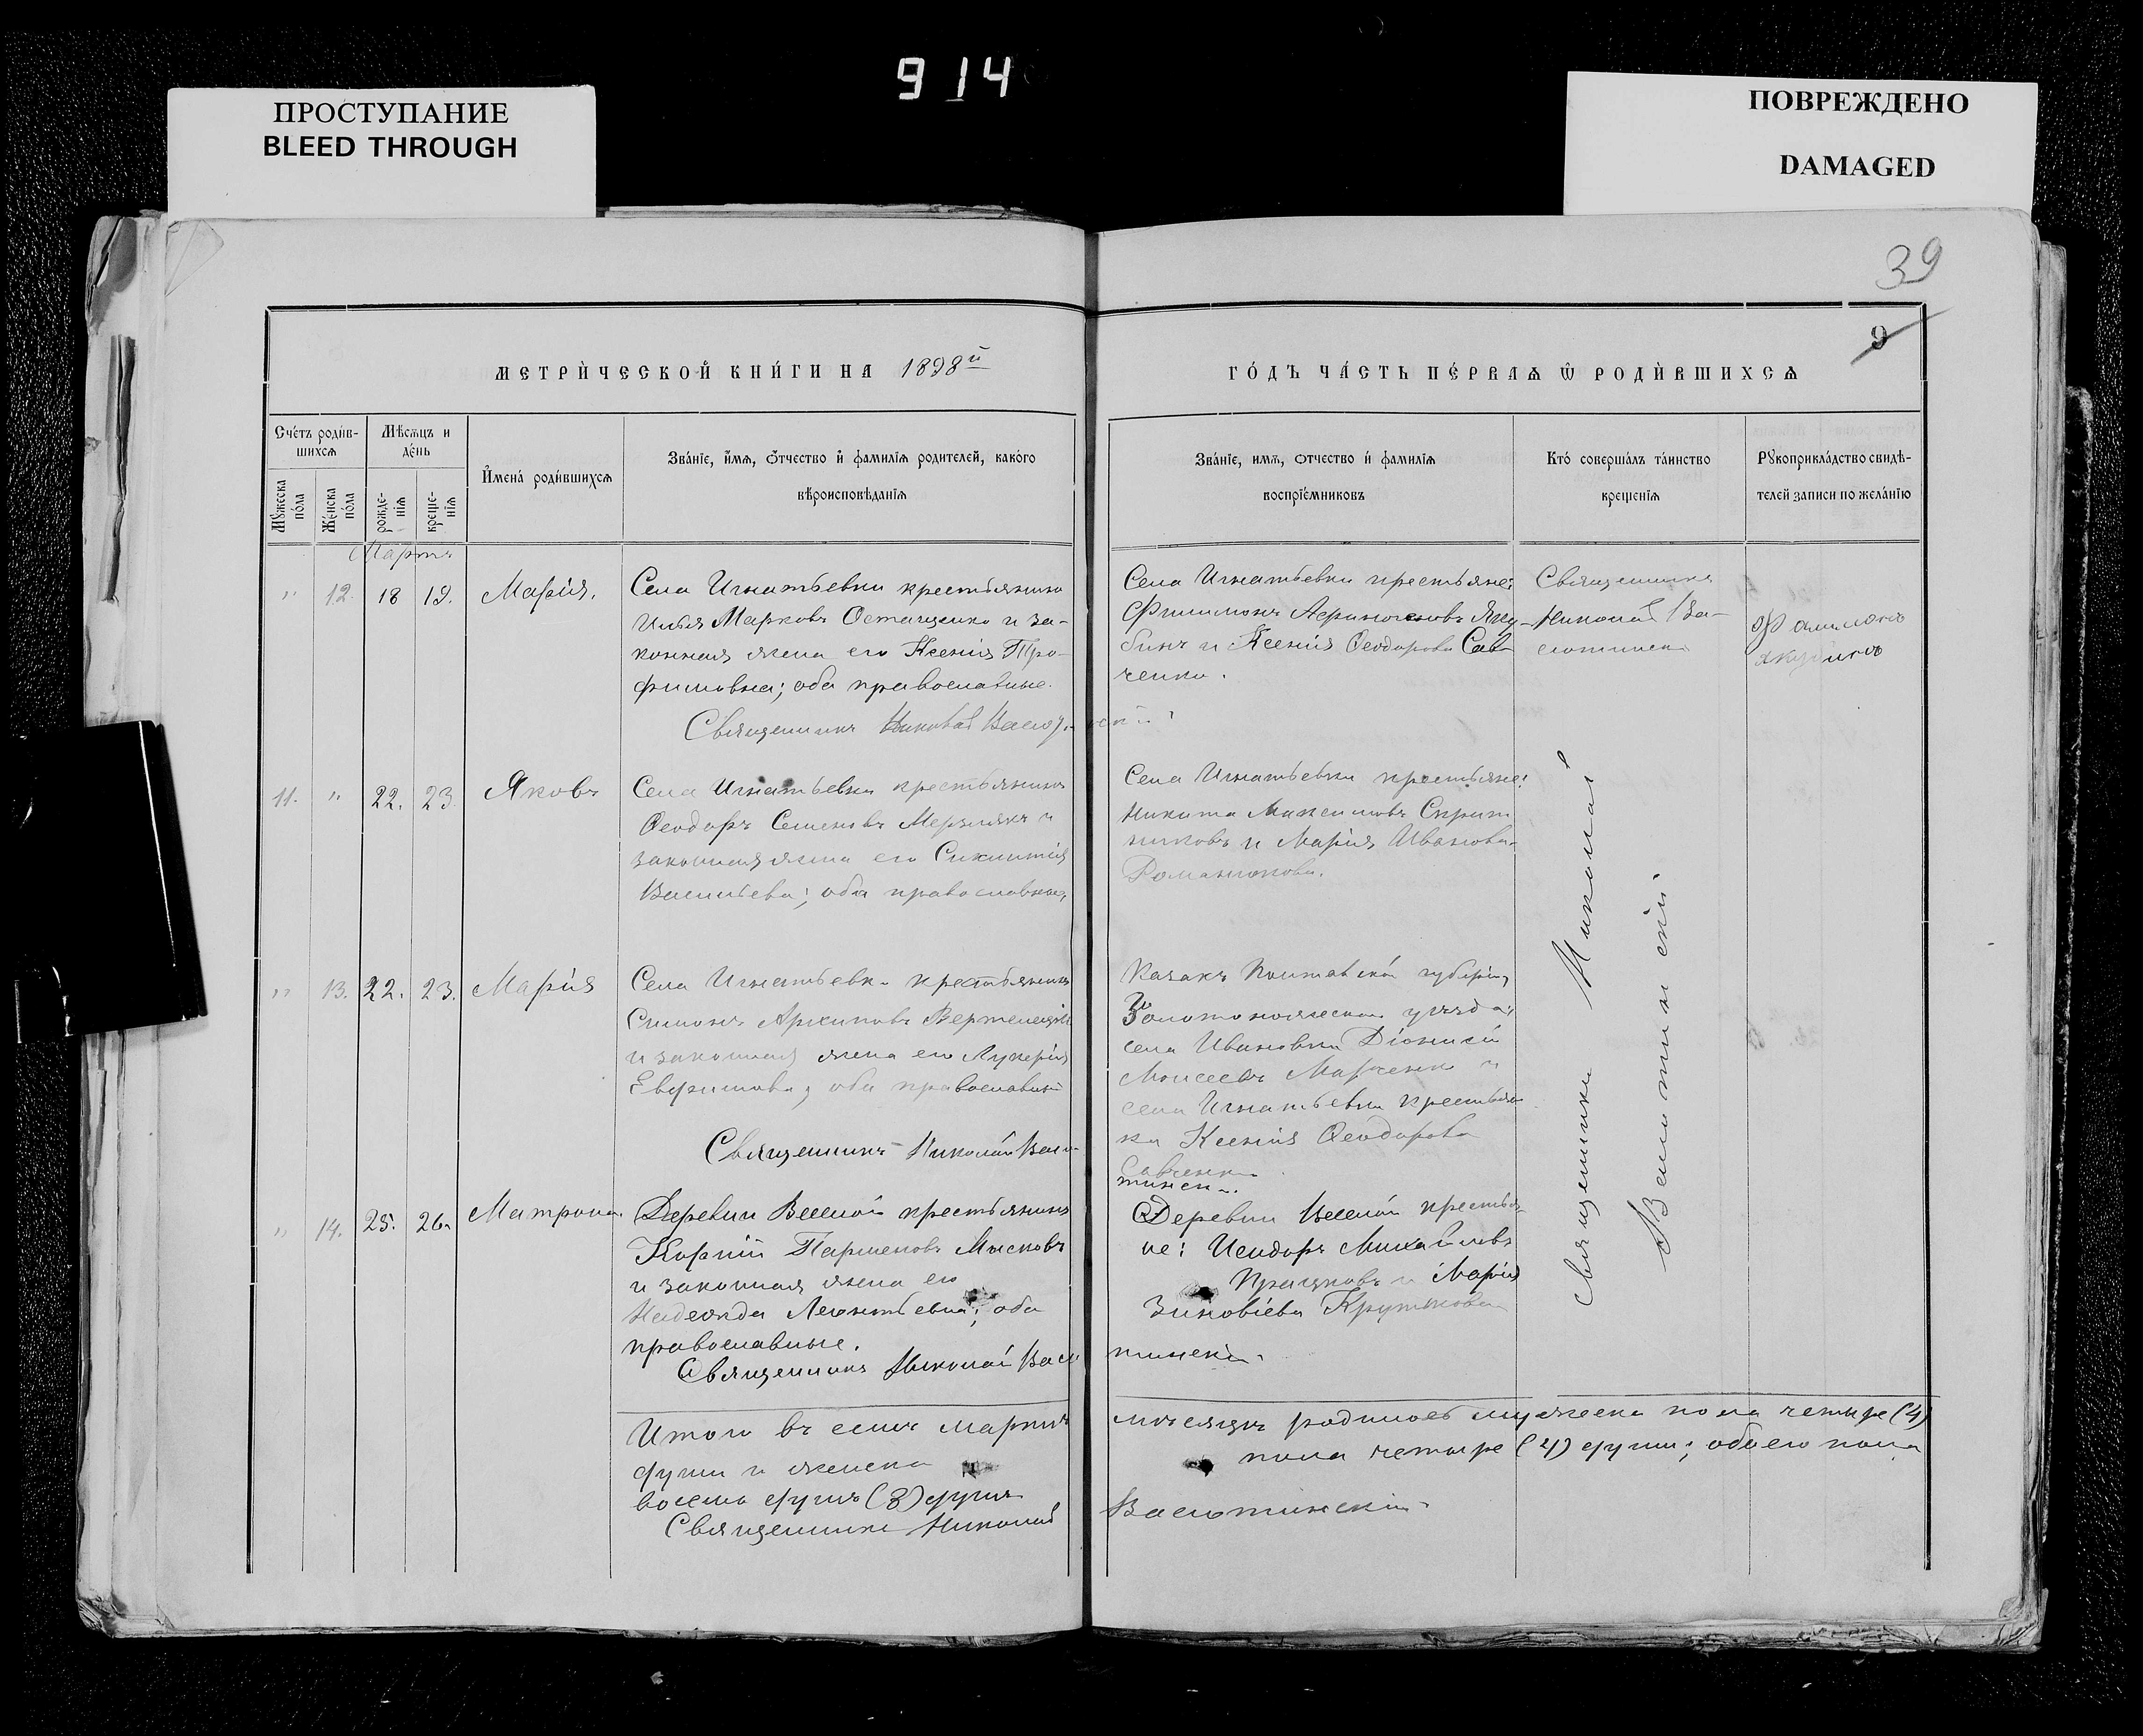 914
ПРОСТУПАНИЕ
BLEED THROUGH
ПОВРЕЖДЕНО
DAMAGED
39
9
МЕТРИ́ЧЕСКОЙ КНИ́ГИ НА 1898й
ГО́ДЪ ЧА́СТЬ ПЕ́РВАѦ Ѿ РОДИ́ВШИХСѦ
Сче́тъ роди́в-
шихсѧ
Мꙋ́жеска по́ла
Же́нска по́ла
Мѣ́сѧцъ и
де́нь
рожде-
нїѧ
креще-
нїѧ
И҆мена̀ роди́вшихсѧ
Зва́нїе, и҆́мѧ, ѻ҆́тчество и҆ фами́лїѧ роди́телей, како́го
вѣроисповѣ́данїѧ
Зва́нїе, имѧ, ѻтчество и҆ фами́лїѧ
воспрїе́мниковъ
Кто̀ соверша́лъ та́инство
креще́нїѧ
Рꙋкоприкла́дство свидѣ́-
телей записи по жела́нїю
Мартъ
" 12. 18 19. Марія.
Села Игнатьевки крестьянинъ
Илья Марковъ Остащенко и за-
конная жена его Ксенія Тро-
фимовна; оба православные.
Священникъ Николай Васютинскій
Села Игнатьевки крестьяне:
Филимонъ Яку-
бинъ и Ксенія Ѳеодорова Сав-
ченко.
Священникъ
Николай Ва-
сютинскій
Филимонъ
Якубинъ
11. " 22. 23. Яковъ
Села Игнатьевки крестьянинъ
Ѳеодоръ Семеновъ Мерзлякъ и
законная жена его
Васильева; оба православные,
Села Игнатьевки крестьяне:
Никита Максимовъ Скрип
никовъ и Марія Иванова
Романюкова.
" 13. 22. 23. Марія
Села Игнатьевки крестьянинъ
Симонъ Архиповъ
и законная жена его Лукерія
Евфимова; оба православные
Священникъ Николай Васю-
тинскій.
Казакъ Полтавской губерніи,
Золотоношскаго уѣзда,
села Ивановки Діонисій
Моисеевъ Марченко и
села Игнатьевки крестьян
ка Ксенія Ѳеодорова
Савченко
" 14. 25. 26. Матрона.
Деревни Веселой крестьянинъ
Парменовъ Мысковъ
и законная жена его
Надежда Леонтьевна; оба
православные.
Священникъ Николай Васю
тинскій.
Деревни Веселой крестья-
не: Исидоръ Михайловъ
и Марія
Зиновіева Крутькова
Священникъ Николай
Васютинскій
Итого въ семъ мартѣ мѣсяцѣ родилось мужеска пола четыре (4)
души и женска пола четыре (4) души; обоего пола
восемь душъ (8) душъ
Священникъ Николай Васютинскій